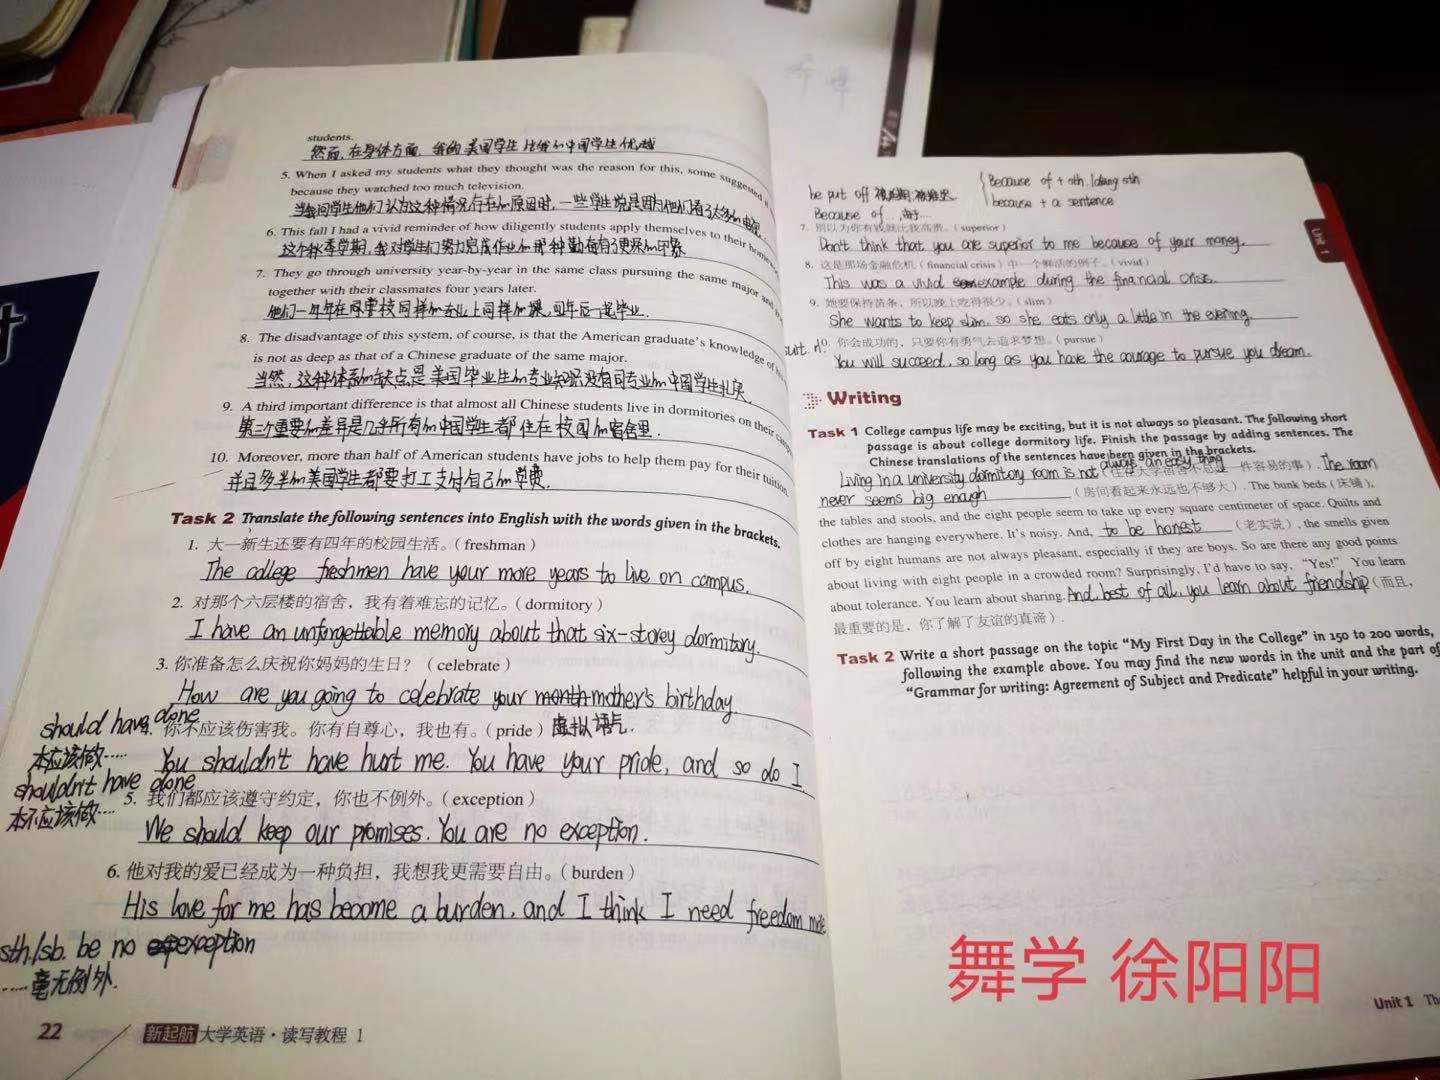 students.
然而,在身体方面,我的美国学生比我的中国学生优越
5. When I asked my students what they thought was the reason for this, some suggested
because they watched too much television.
当我问学生他们认为这种情况存在的原因时,一些学生说是因为他们看了太多的电视
6. This fall I had a vivid reminder of how diligently students apply themselves to their
这个秋季学期,我对学生们努力完成作业的那种勤奋有了更深的印象
7. They go through university year-by-year in the same class pursuing the same major and
together with their classmates four years later.
他们一年年在同学校同样的专业上同样的课,四年后一起毕业.
8. The disadvantage of this system, of course, is that the American graduate's knowledge of
is not as deep as that of a Chinese graduate of the same major.
当然,这种体系的缺点是美国毕业生的专业知识没有同专业的中国学生扎实
9. A third important difference is that almost all Chinese students live in dormitories on their
第三个重要的差异是几乎所有的中国学生都住在校园的宿舍里.
10. Moreover, more than half of American students have jobs to help them pay for their tuition.
并且多半的美国学生都要打工支付自己的学费.
Task 2 Translate the following sentences into English with the words given in the brackets.
1. 大一新生还要有四年的校园生活。(freshman)
The college freshmen have your more years to live on campus.
2. 对那个六层楼的宿舍,我有着难忘的记忆。(dormitory)
I have an unforgettable memory about that six-storey dormitory.
3. 你准备怎么庆祝你妈妈的生日?(celebrate)
How are you going to celebrate your mother's birthday.
should have done
你不应该伤害我。你有自尊心,我也有。(pride) 虚拟语气.
本应该做……
You shouldn't have hurt me. You have your pride, and so do I
shouldn't have done
5. 我们都应该遵守约定,你也不例外。(exception)
本不应该做…
We should keep our promises. You are no exception.
6. 他对我的爱已经成为一种负担,我想我更需要自由。(burden)
His love for me has become a burden, and I think I need freedom more
sth./sb. be no exception
……毫无例外.
22 新起航 大学英语·读写教程 1
Because of + sth./doing sth
be put off 被延期,被推迟.
because + a sentence
Because of
7. 别以为你有钱就比我高贵。(superior)
Don't think that you are superior to me because of your money.
8. 这是那场金融危机(financial crisis)中一个鲜活的例子。(vivid)
This was a vivid example during the financial crisis.
9. 她要保持苗条,所以晚上吃得很少。(slim)
She wants to keep slim, so she eats only a little in the evening.
suit n.
0. 你会成功的,只要你有勇气去追求梦想。(pursue)
You will succeed, so long as you have the courage to pursue you dream.
Unit 1
Writing
Task 1 College campus life may be exciting, but it is not always so pleasant. The following short
passage is about college dormitory life. Finish the passage by adding sentences. The
Chinese translations of the sentences have been given in the brackets.
Living in a university dormitory room is not always an easy thing (住在大学宿舍不总是一件容易的事). The room
never seems big enough (房间看起来永远也不够大). The bunk beds (床铺),
the tables and stools, and the eight people seem to take up every square centimeter of space. Quilts and
clothes are hanging everywhere. It's noisy. And, to be honest (老实说), the smells given
off by eight humans are not always pleasant, especially if they are boys. So are there any good points
about living with eight people in a crowded room? Surprisingly, I'd have to say, "Yes!" You learn
about tolerance. You learn about sharing. And, best of all, you learn about friendship (而且,
最重要的是,你了解了友谊的真谛).
Task 2 Write a short passage on the topic "My First Day in the College" in 150 to 200 words,
following the example above. You may find the new words in the unit and the part of
"Grammar for writing: Agreement of Subject and Predicate" helpful in your writing.
舞学 徐阳阳
Unit 1